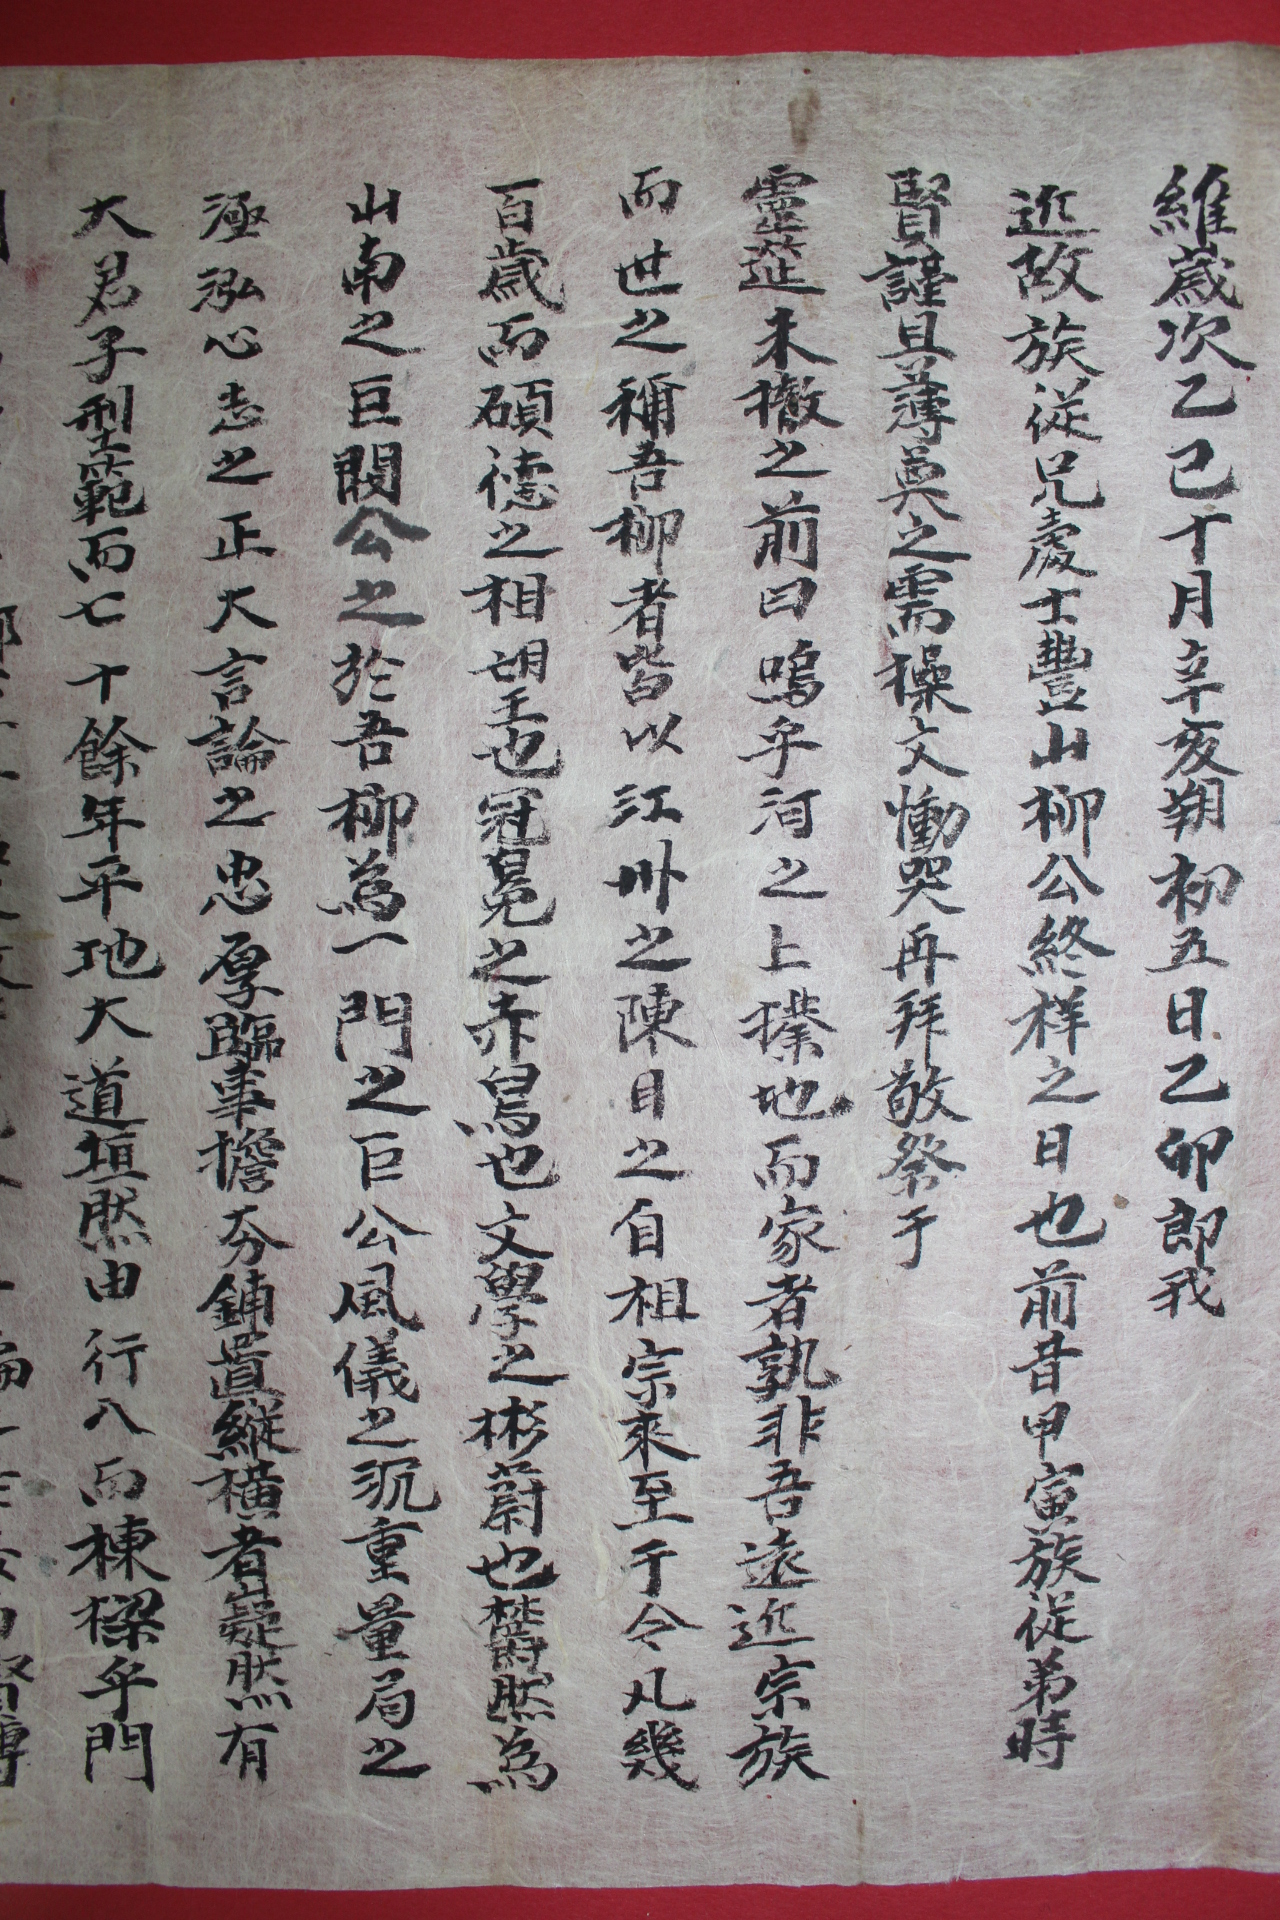 維歲次乙巳十月辛亥朔初五日乙卯郎我
近故族從兄處士豐山柳公終祥之日也前昔甲寅族從弟時
賢謹具薄奠之需而操文慟哭再拜敬祭于
靈筵未撤之前曰嗚乎河之上襆地而家者孰非吾遠近宗族
而世之稱吾柳者皆以江州之陳目之自祖宗來至于今凡幾
百歲而碩德之相望也冠冕之赤舃也文學之彬蔚也欝然為
山南之巨閥公之於吾柳為一門之巨公風儀之沉重量局之
極泓心志之正大言論之忠厚臨事擔夯鋪置縱橫者嶷然有
大君子型範而七十餘年平地大道坦然由行八而棟樑乎門